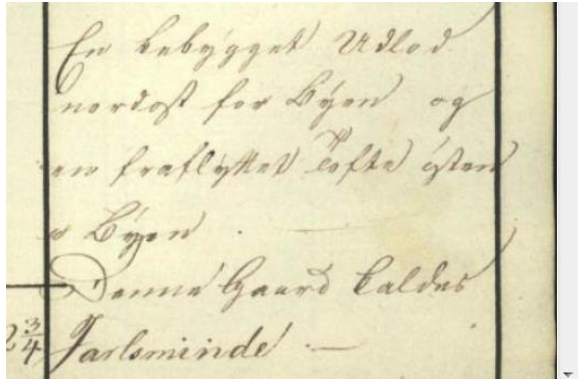 En bebygget Udlod
nordost for Byen og
en fraflyttet Tofte østen
Byen.
Denne Gaard kaldes
2 3/4 Jarlsminde. —